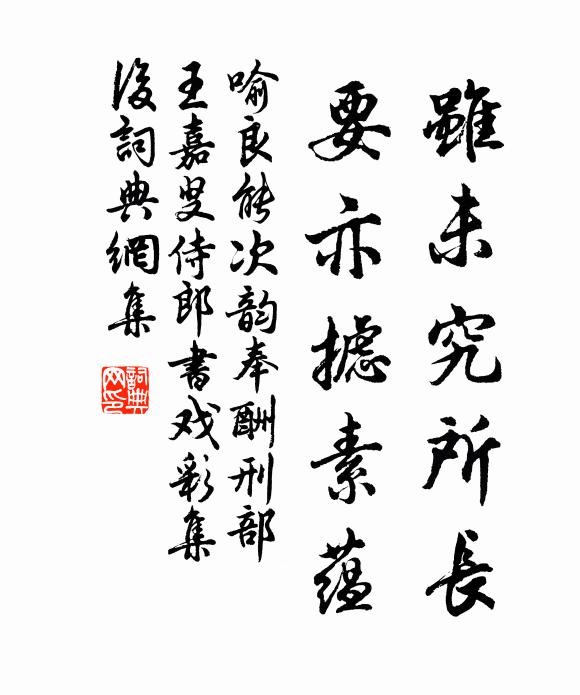 雖未究所長
要亦攄素蘊
喻良能次韵奉酬刑部
王嘉叟侍郎書戏彩集
後詞典網集
詞典
网印